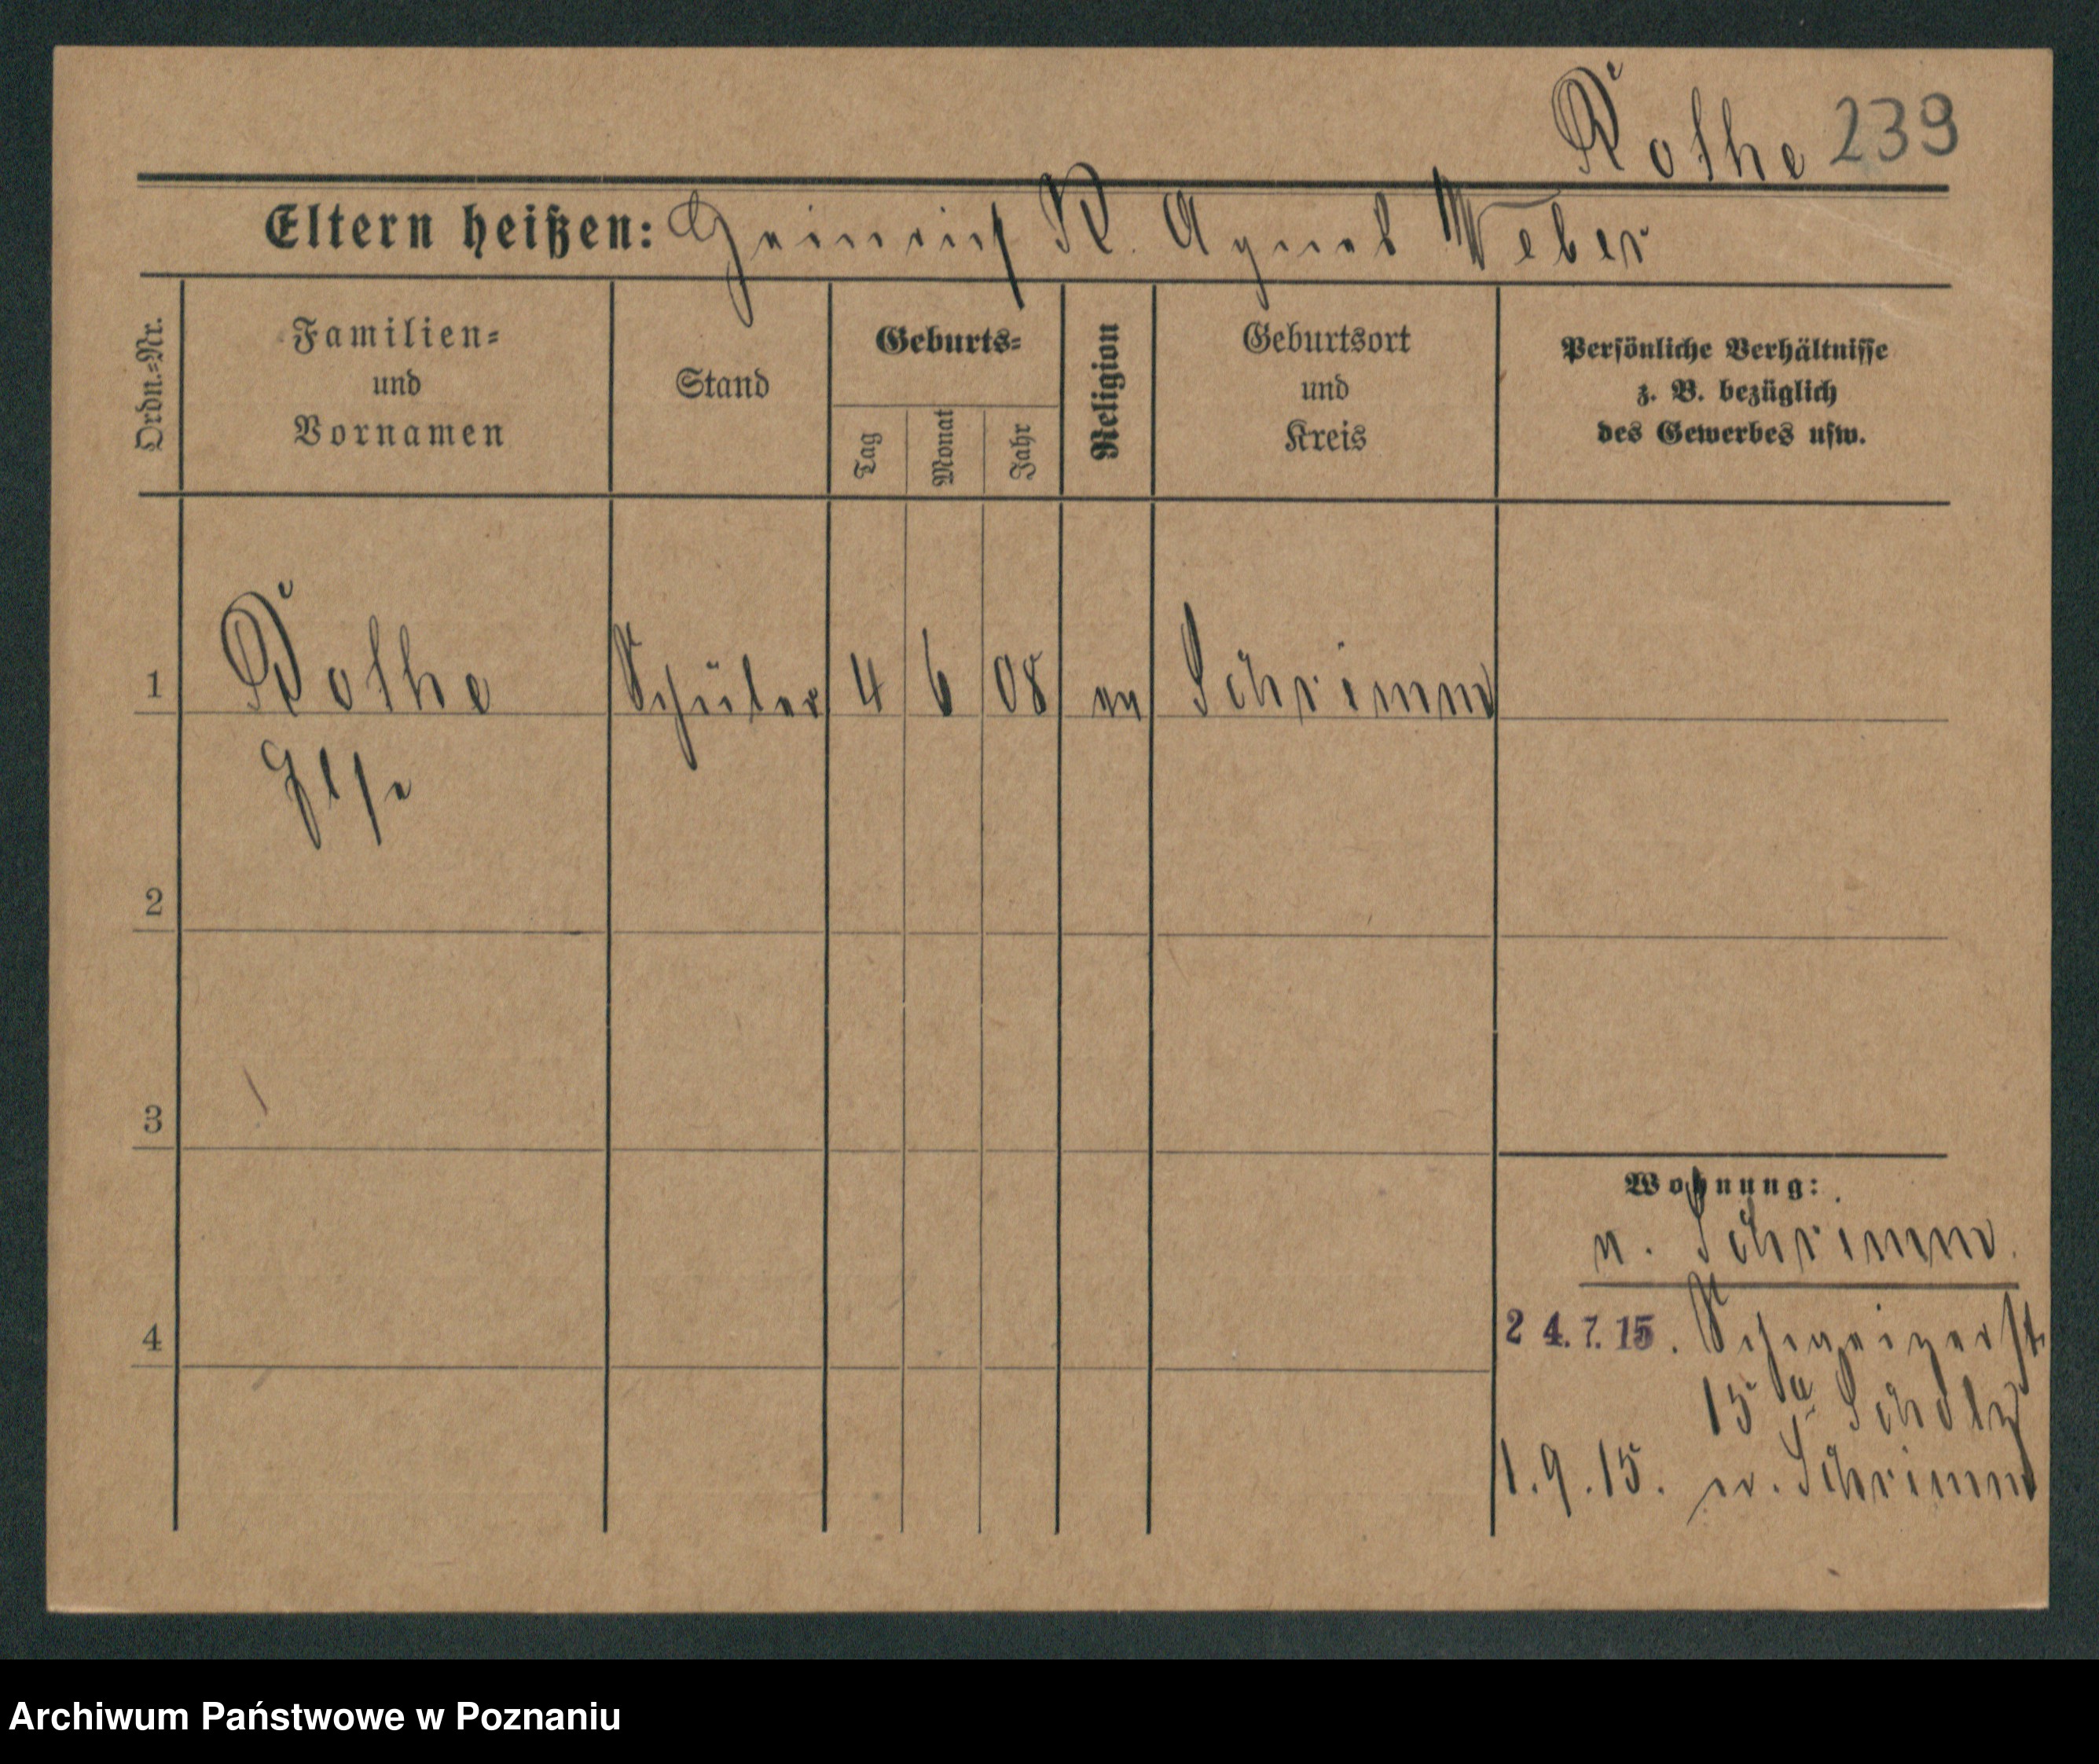 Rothe 239
Eltern heißen: Heinrich R. Agnes Weber
Ordn.-Nr.
Familien-
und
Vornamen
Stand
Geburts-
Tag
Monat
Jahr
Religion
Geburtsort
und
Kreis
Persönliche Verhältnisse
z. B. bezüglich
des Gewerbes usw.
1 Rothe Schüler 4 6 08 ev Schrimm
Ilse
2
3
4
Wohnung:
n. Schrimm.
24.7.15. Schweizerst.
15a Scholz
1.9.15. n. Schrimm
Archiwum Państwowe w Poznaniu